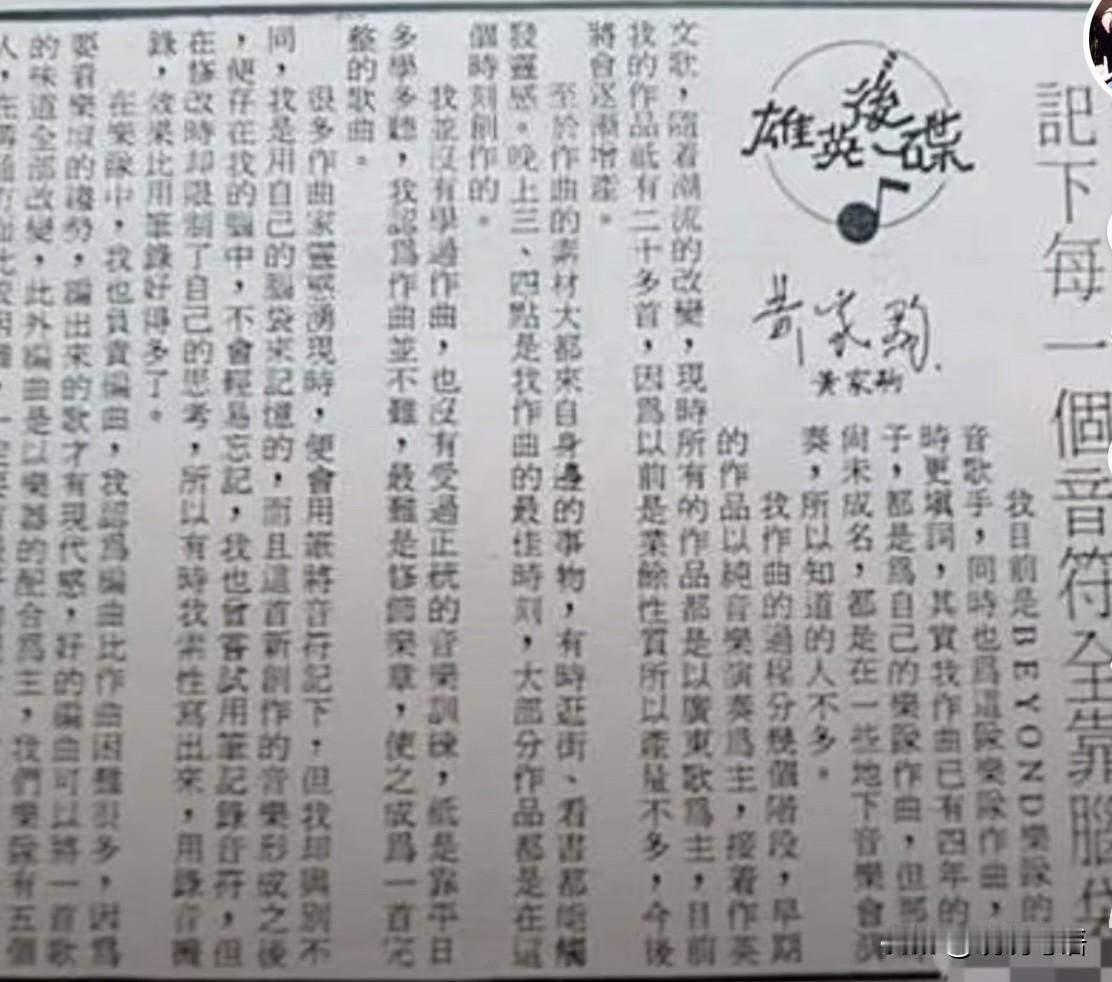 記下每一個音符全靠腦袋
碟後英雄
黃家駒
黃家駒
我目前是BEYOND樂隊的
音歌手,同時也為這隊樂隊作曲,
時更填詞,其實我作曲已有四年的
子,都是為自己的樂隊作曲,但那
尚未成名,都是在一些地下音樂會
奏,所以知道的人不多。
我作曲的過程分幾個階段,早期
的作品以純音樂演奏為主,接着作英
文歌,隨着潮流的改變,現時所有的作品都是以廣東歌為主,目前
我的作品祇有二十多首,因為以前是業餘性質所以產量不多,今後
將會逐漸增產。
至於作曲的素材大都來自身邊的事物,有時逛街、看書都能觸
發靈感。晚上三、四點是我作曲的最佳時刻,大部分作品都是在這
個時刻創作的。
我並沒有學過作曲,也沒有受過正統的音樂訓練,祇是靠平日
多學多聽,我認為作曲並不難,最難是修飾樂章,使之成為一首完
整的歌曲。
很多作曲家靈感湧現時,便會用紙將音符記下,但我却與別不
同,我是用自己的腦袋來記憶的,而且這首新創作的音樂形成之後
,便存在我的腦中,不會輕易忘記,我也曾嘗試用筆記錄音符,但
在修改時却限制了自己的思考,所以有時我索性寫出來,用錄音機
錄,效果比用筆錄好得多了。
在樂隊中,我也負責編曲,我認為編曲比作曲困難很多,因為
要看樂壇的趨勢,編出來的歌才有現代感,好的編曲可以將一首歌
的味道全部改變,此外編曲是以樂器的配合為主,我們樂隊有五個
人,在這方面比較困難,一定要